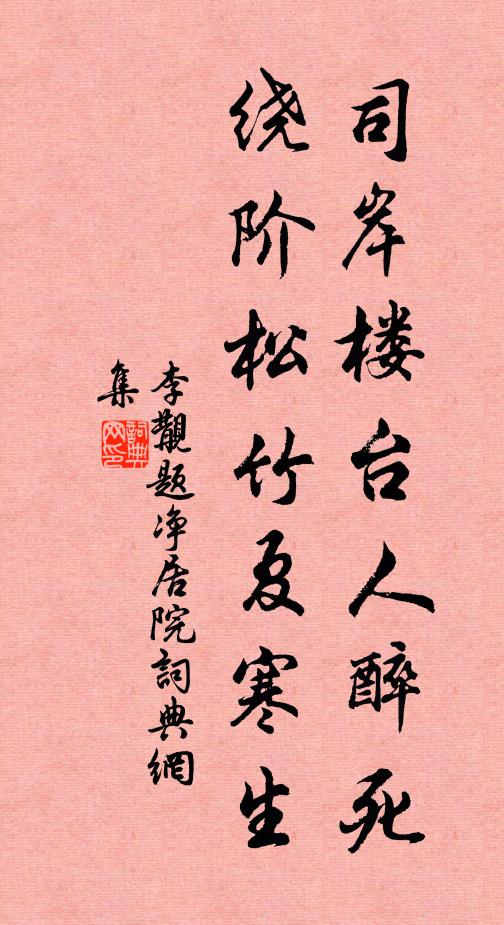 司岸楼台人醉死
绕阶松竹夏寒生
李觀题净居院詞典網
集
詞典网印